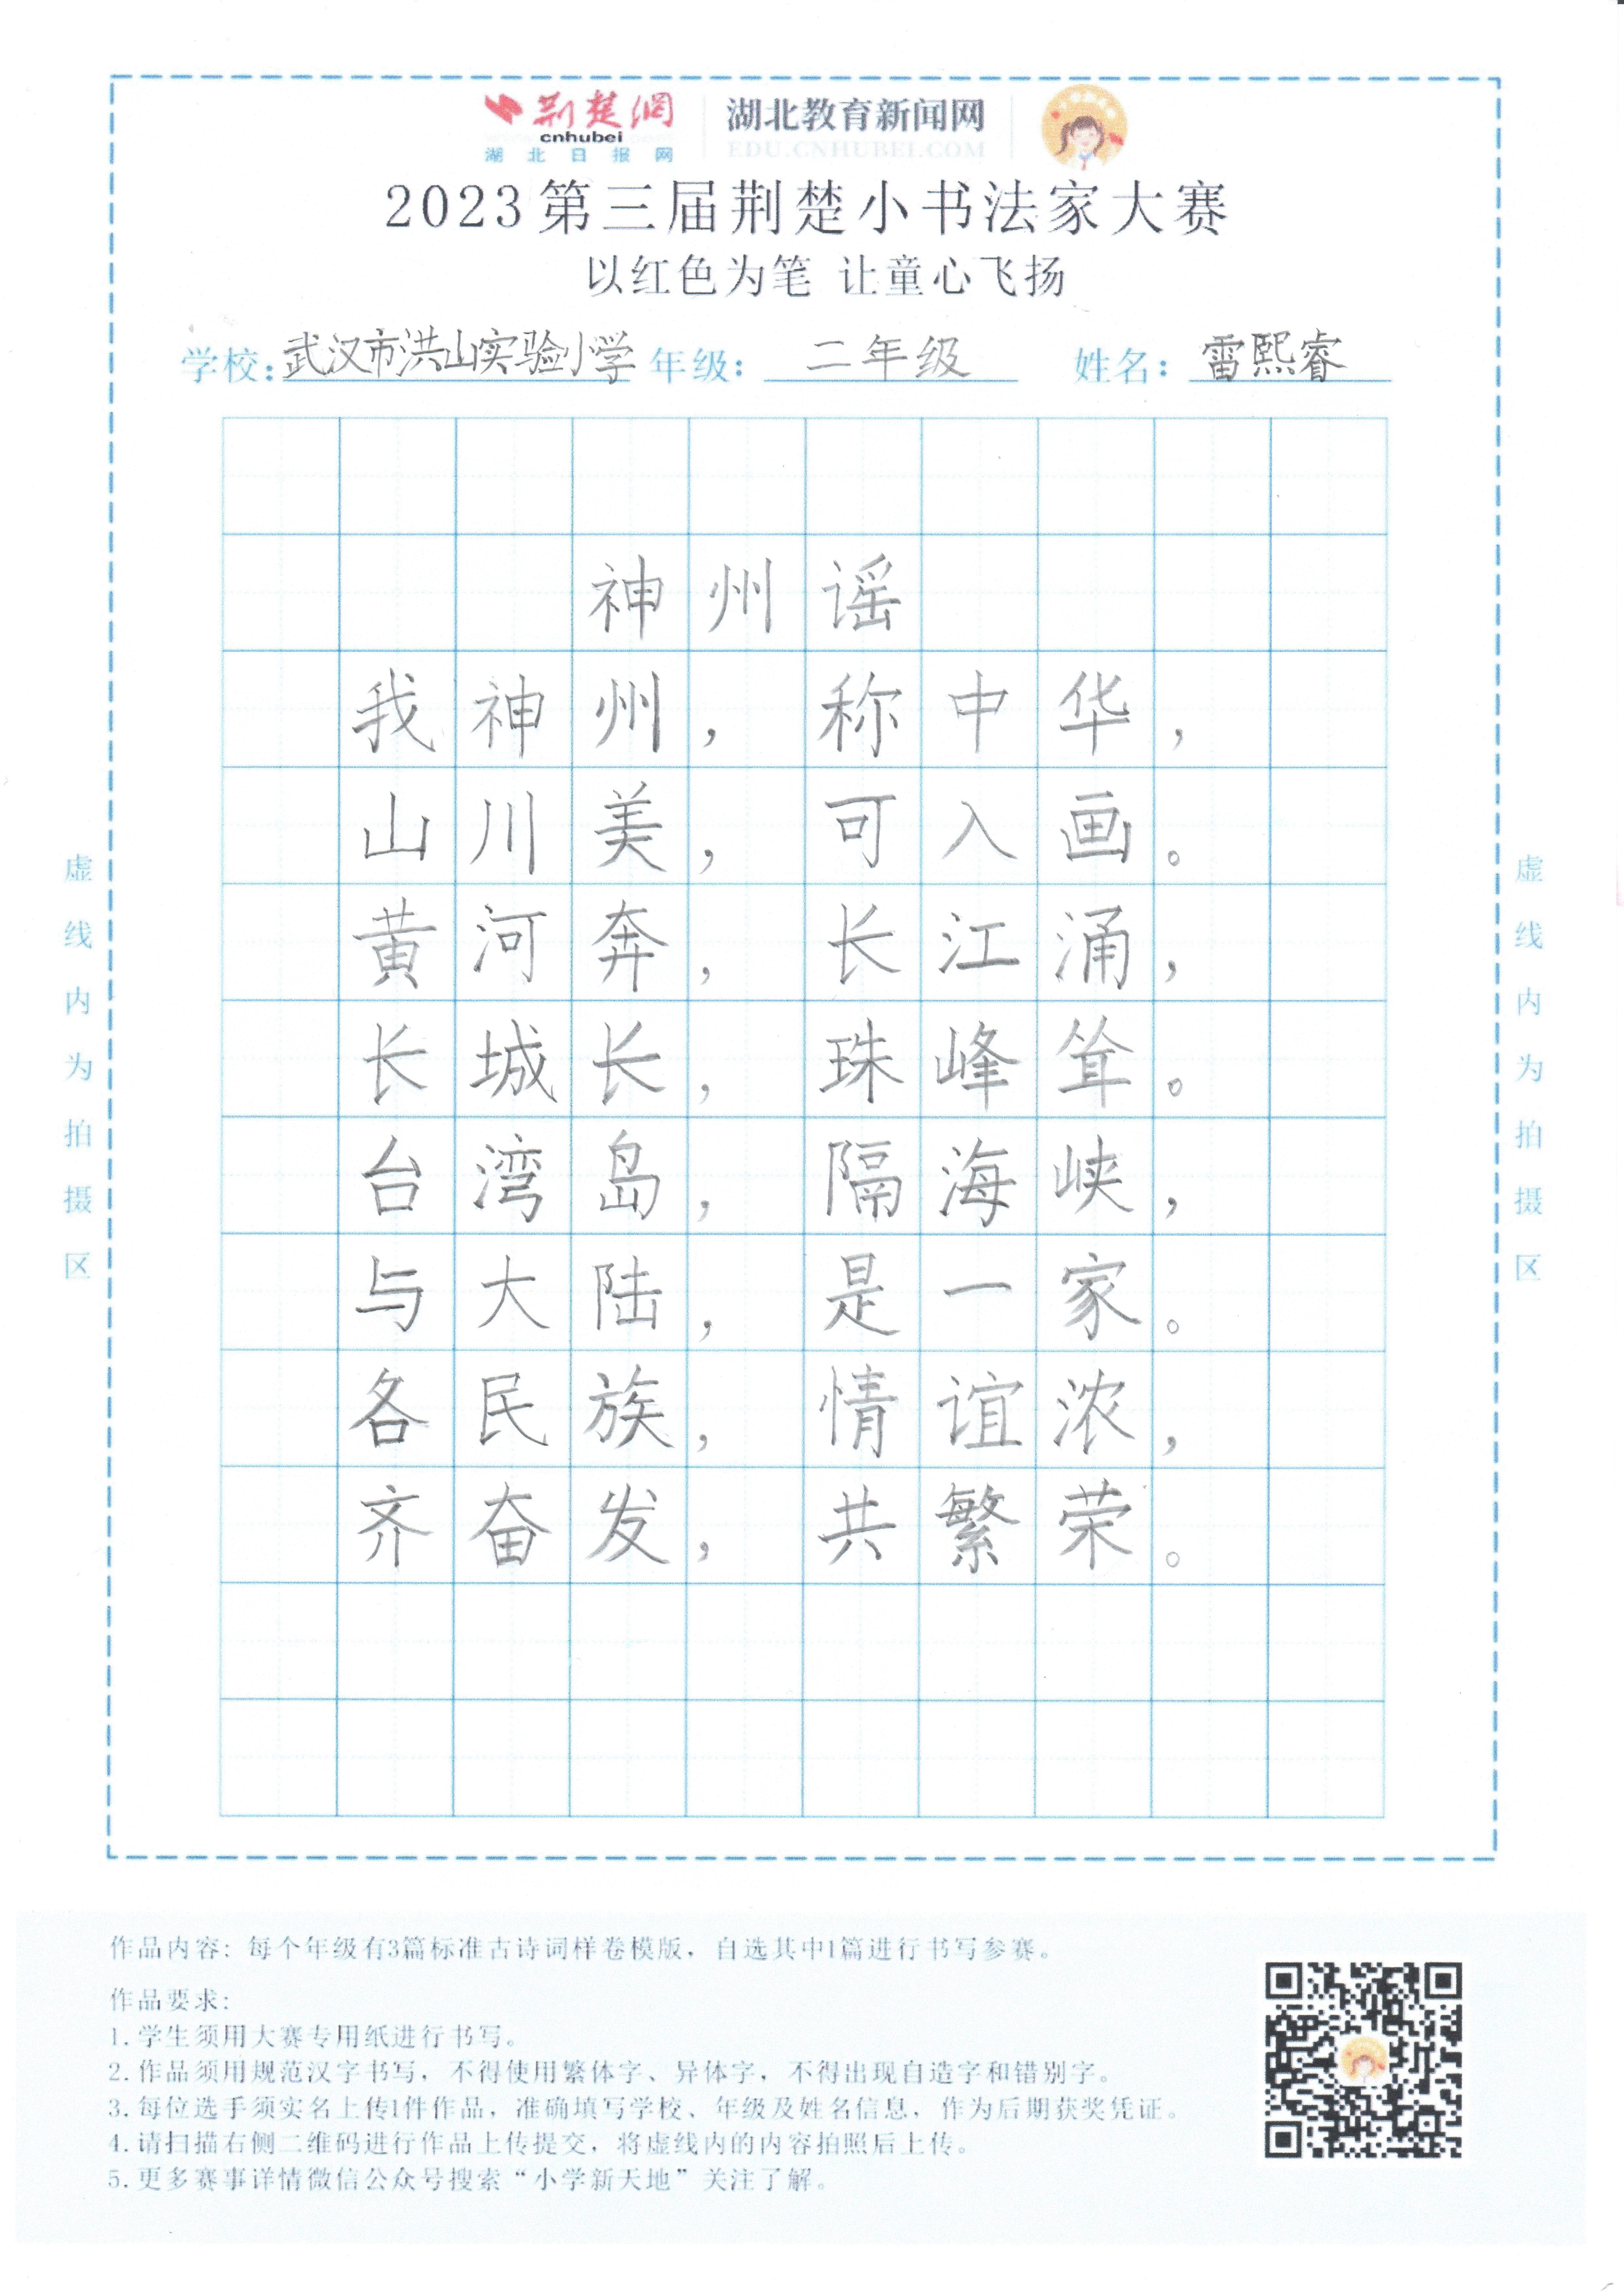 荆楚網
cnhubei
湖北日报网
湖北教育新闻网
EDU.CNHUBEI.COM
2023第三届荆楚小书法家大赛
以红色为笔 让童心飞扬
学校:武汉市洪山实验小学 年级:二年级 姓名:雷熙睿
神州谣
我神州，称中华，
山川美，可入画。
黄河奔，长江涌，
长城长，珠峰耸。
台湾岛，隔海峡，
与大陆，是一家。
各民族，情谊浓，
齐奋发，共繁荣。
虚线内为拍摄区
虚线内为拍摄区
作品内容: 每个年级有3篇标准古诗词样卷模版，自选其中1篇进行书写参赛。
作品要求:
1.学生须用大赛专用纸进行书写。
2.作品须用规范汉字书写，不得使用繁体字、异体字，不得出现自造字和错别字。
3.每位选手须实名上传1件作品，准确填写学校、年级及姓名信息，作为后期获奖凭证。
4.请扫描右侧二维码进行作品上传提交，将虚线内的内容拍照后上传。
5.更多赛事详情微信公众号搜索“小学新天地”关注了解。